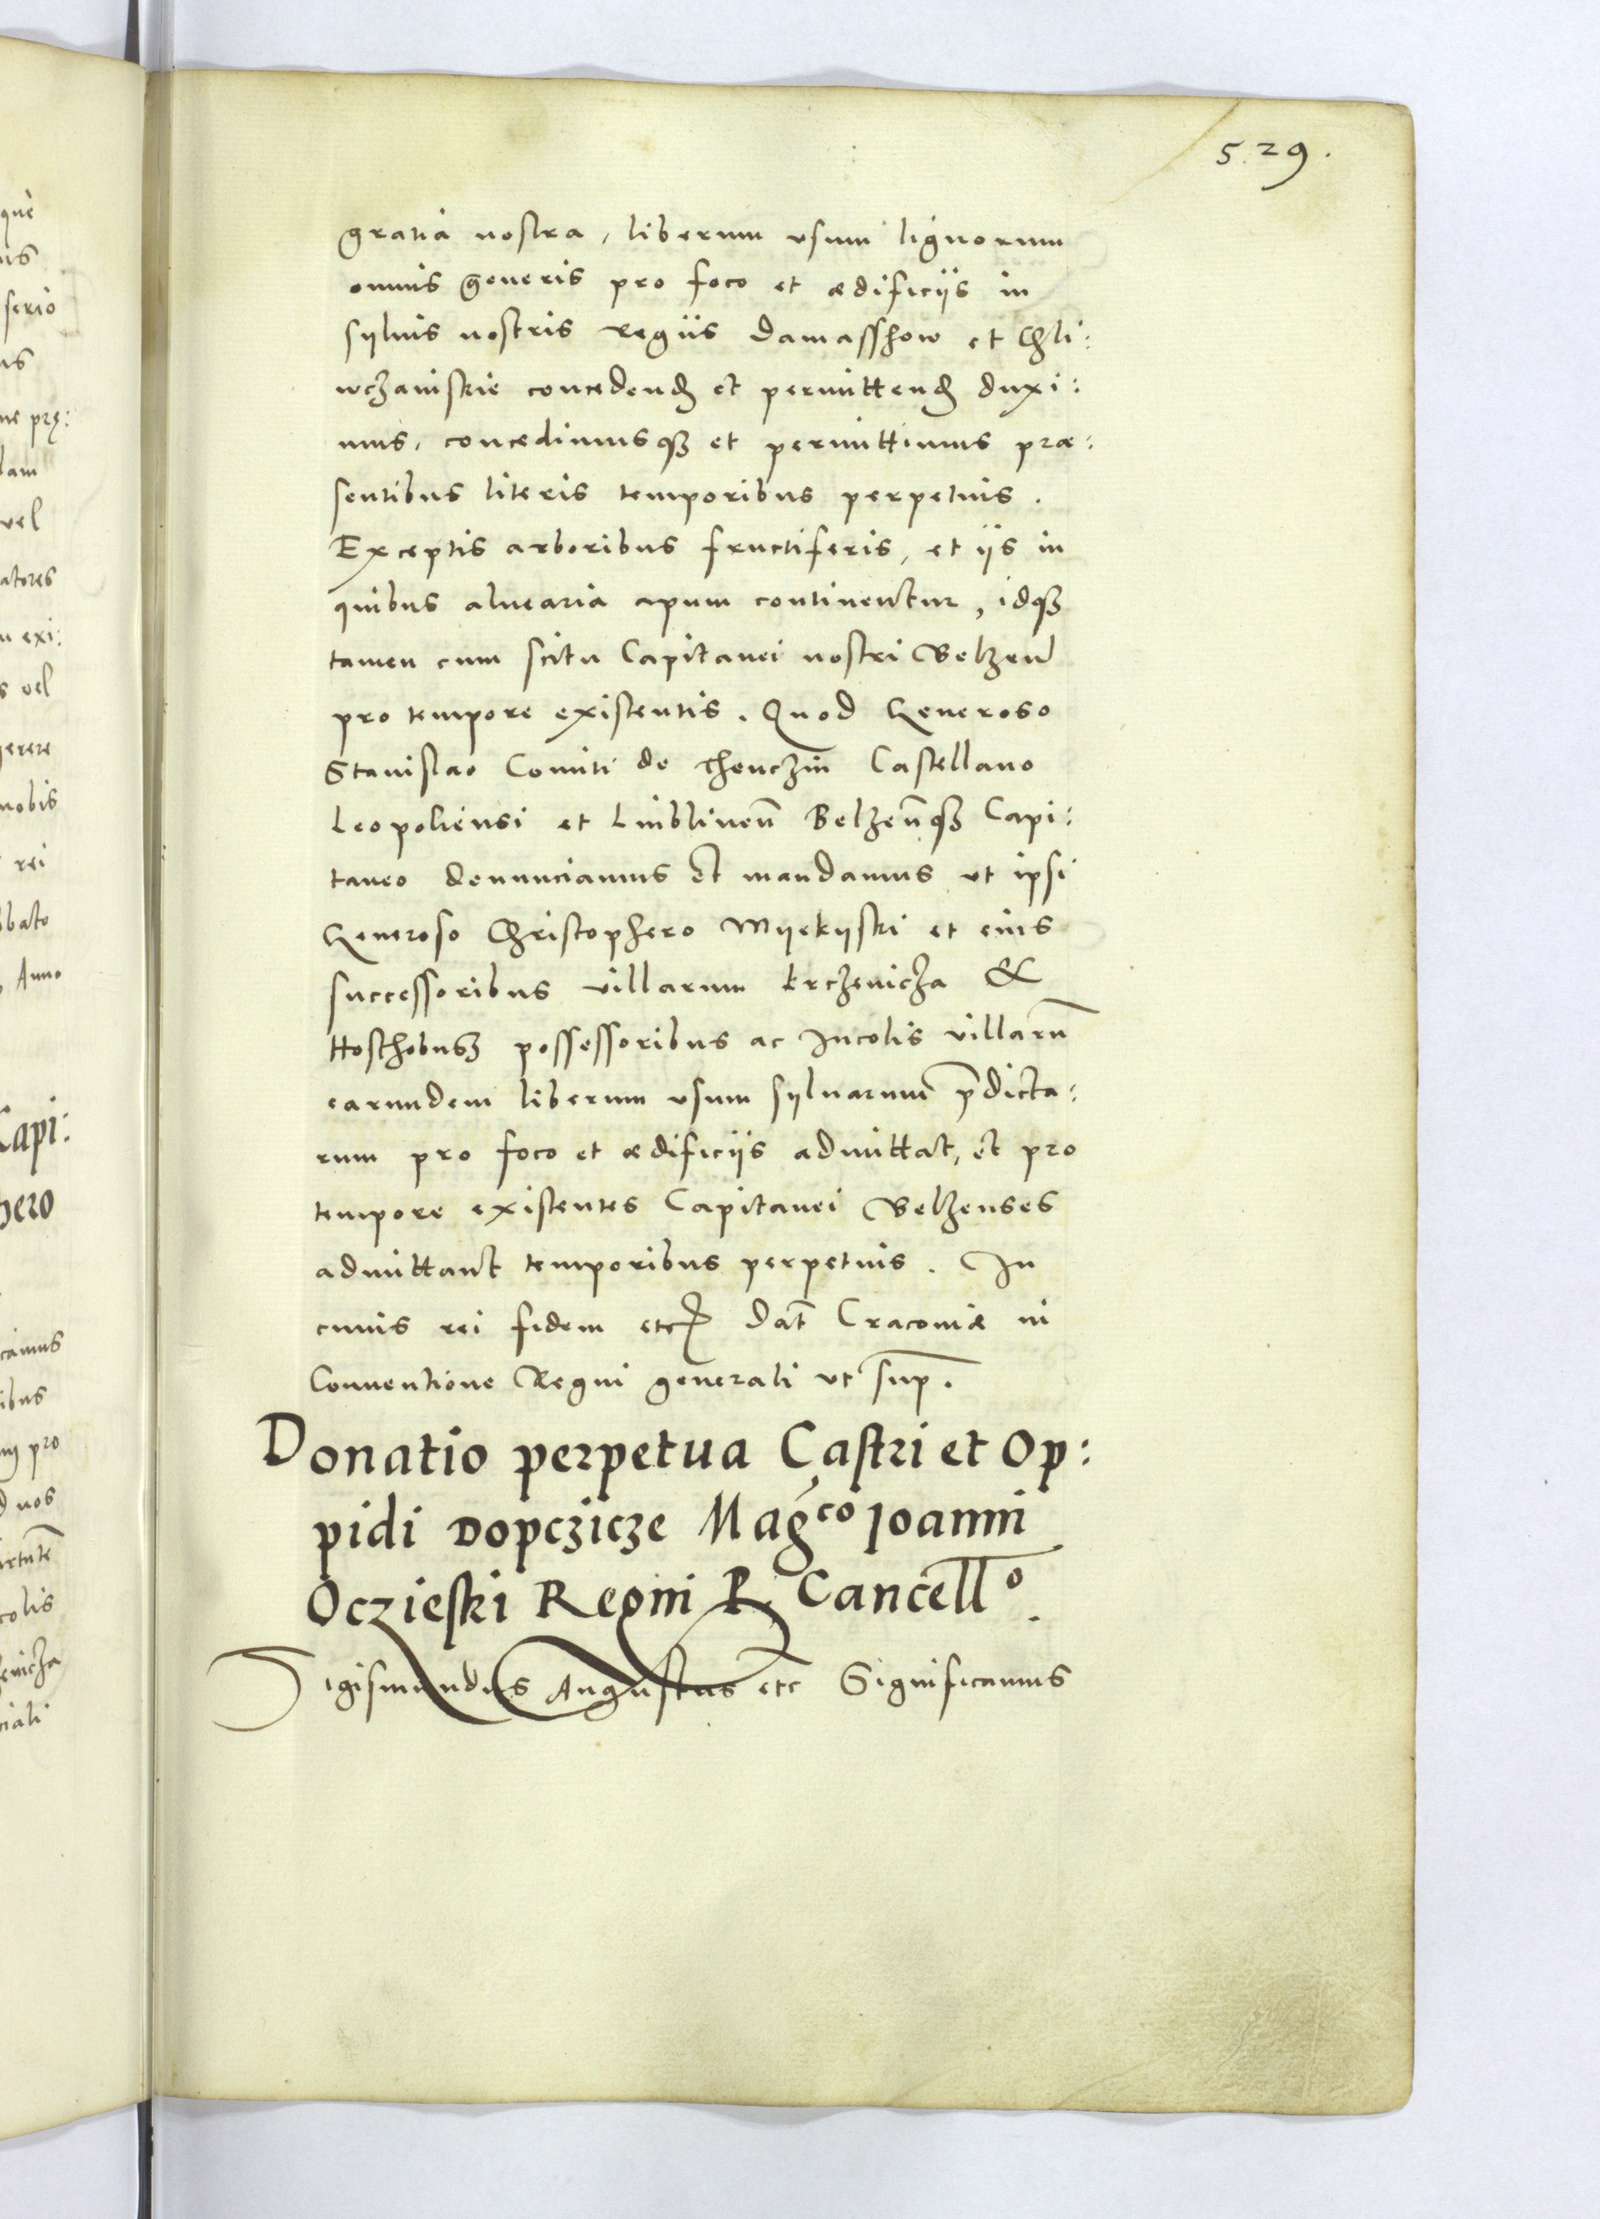 529.
gratia nostra, liberum usum lignorum
omnis generis pro foco et ædificijs in
sylvis nostris Regiis Damasshow et Chli:
wczaniskie concedend et permittend duxi:
mus, concedimusqꝫ et permittimus præ:
sentibus literis temporibus perpetuis.
Exceptis arboribus fructiferis, et ijs in
quibus alvearia apum continentur, idqꝫ
tamen cum scitu Capitanei nostri Belzen
pro tempore existentis. Quod Generoso
Stanislao Comiti de Thenczin Castellano
Leopoliensi et Lublinen Belzenqꝫ Capi:
taneo denunciamus et mandamus ut ipsi
Generoso Christophero Myekyski et eius
successoribus villarum krczenicza &
Hosthobusz possessoribus ac Incolis villarū
earundem liberum usum sylvarum p̄dicta:
rum pro foco et ædificijs admittat, et pro
tempore existentes Capitanei Belzenses
admittant temporibus perpetuis. In
cuius rei fidem etc Dat Cracoviæ in
Conventione Regni generali ut sup.
Donatio perpetua Castri et Op:
pidi Dopczicze Mag^co Joanni
Oczieski Regni P. Cancell^o.
Sigismundus Augustus etc Significamus
que
serio
vel
atores
exi:
vel
nobis
rei
Anno
Capi:
hero
pro
nos
colis